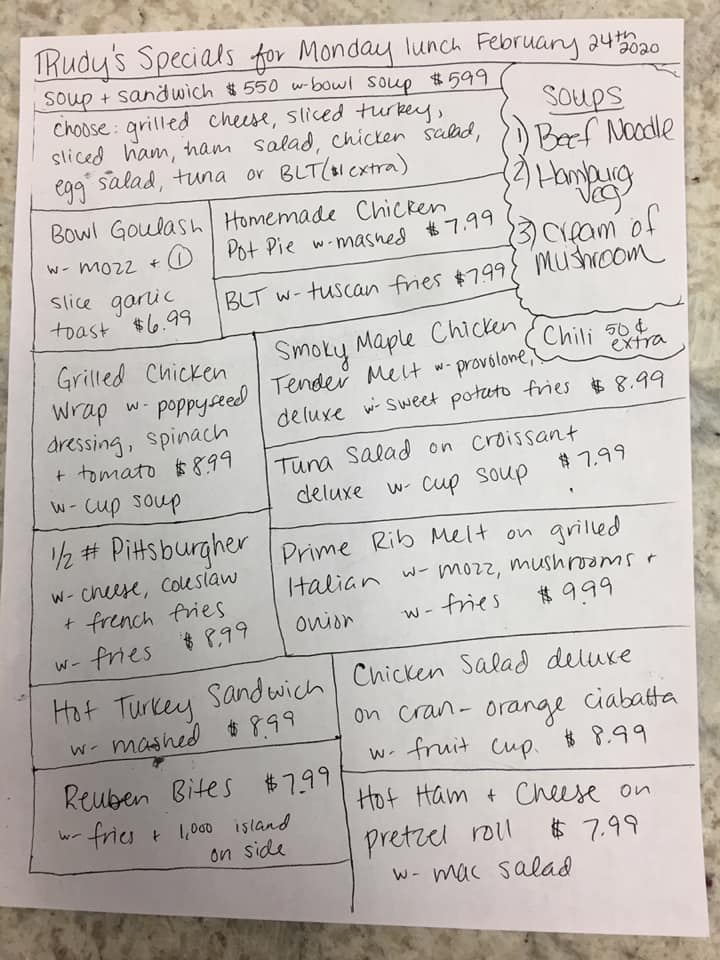 TRudy's Specials for Monday lunch February 24th 2020
soup + sandwich $550 w-bowl soup $599
choose: grilled cheese, sliced turkey,
sliced ham, ham salad, chicken salad,
egg salad, tuna or BLT ($1 extra)
Soups
1) Beef Noodle
2) Hamburg
Veg
3) Cream of
mushroom
Chili 50¢
extra
Bowl Goulash
w- mozz + ①
slice garlic
toast $6.99
Homemade Chicken
Pot Pie w-mashed $7.99
BLT w-tuscan fries $7.99
Grilled Chicken
Wrap w- poppyseed
dressing, spinach
+ tomato $8.99
w- cup soup
Smoky Maple Chicken
Tender Melt w- provolone,
deluxe w- sweet potato fries $8.99
Tuna Salad on croissant
deluxe w- cup soup $7.99
1/2 # Pittsburgher
w- cheese, coleslaw
+ french fries
w- fries $8.99
Prime Rib Melt on grilled
Italian w- mozz, mushrooms +
onion w- fries $9.99
Hot Turkey Sandwich
w- mashed $8.99
Chicken Salad deluxe
on cran-orange ciabatta
w- fruit cup. $8.99
Reuben Bites $7.99
w- fries + 1,000 island
on side
Hot Ham + Cheese on
pretzel roll $7.99
w- mac salad